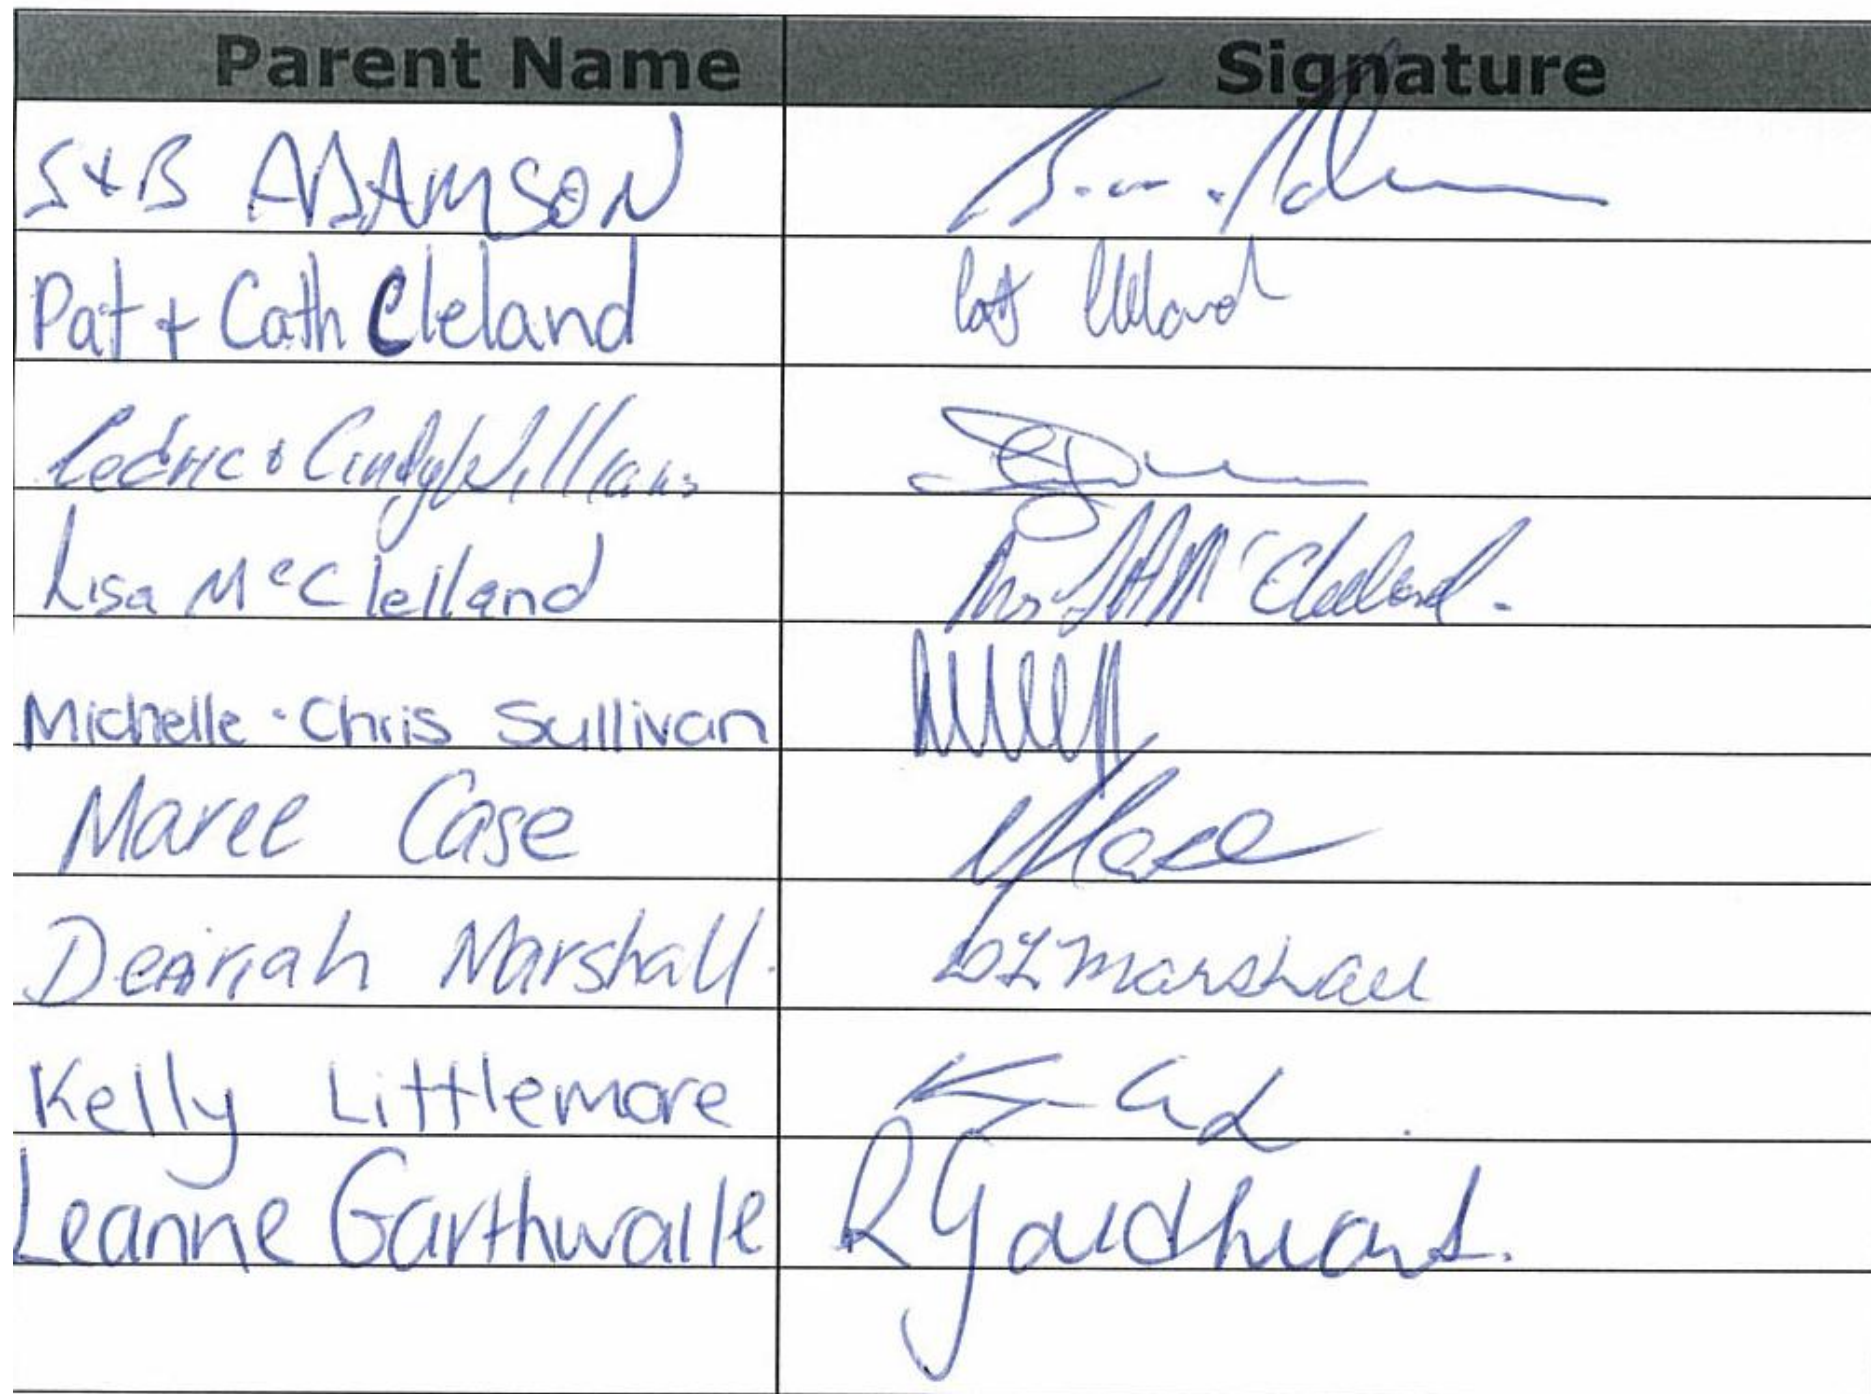 Parent Name Signature
S+B ADAMSON
Pat + Cath Cleland Cleland
Cedric & Cindy Williams
Lisa McClelland Mrs L A McClelland.
Michelle · Chris Sullivan
Maree Case MCase
Marshall. DLMarshall
Kelly Littlemore
Leanne Garthwaite